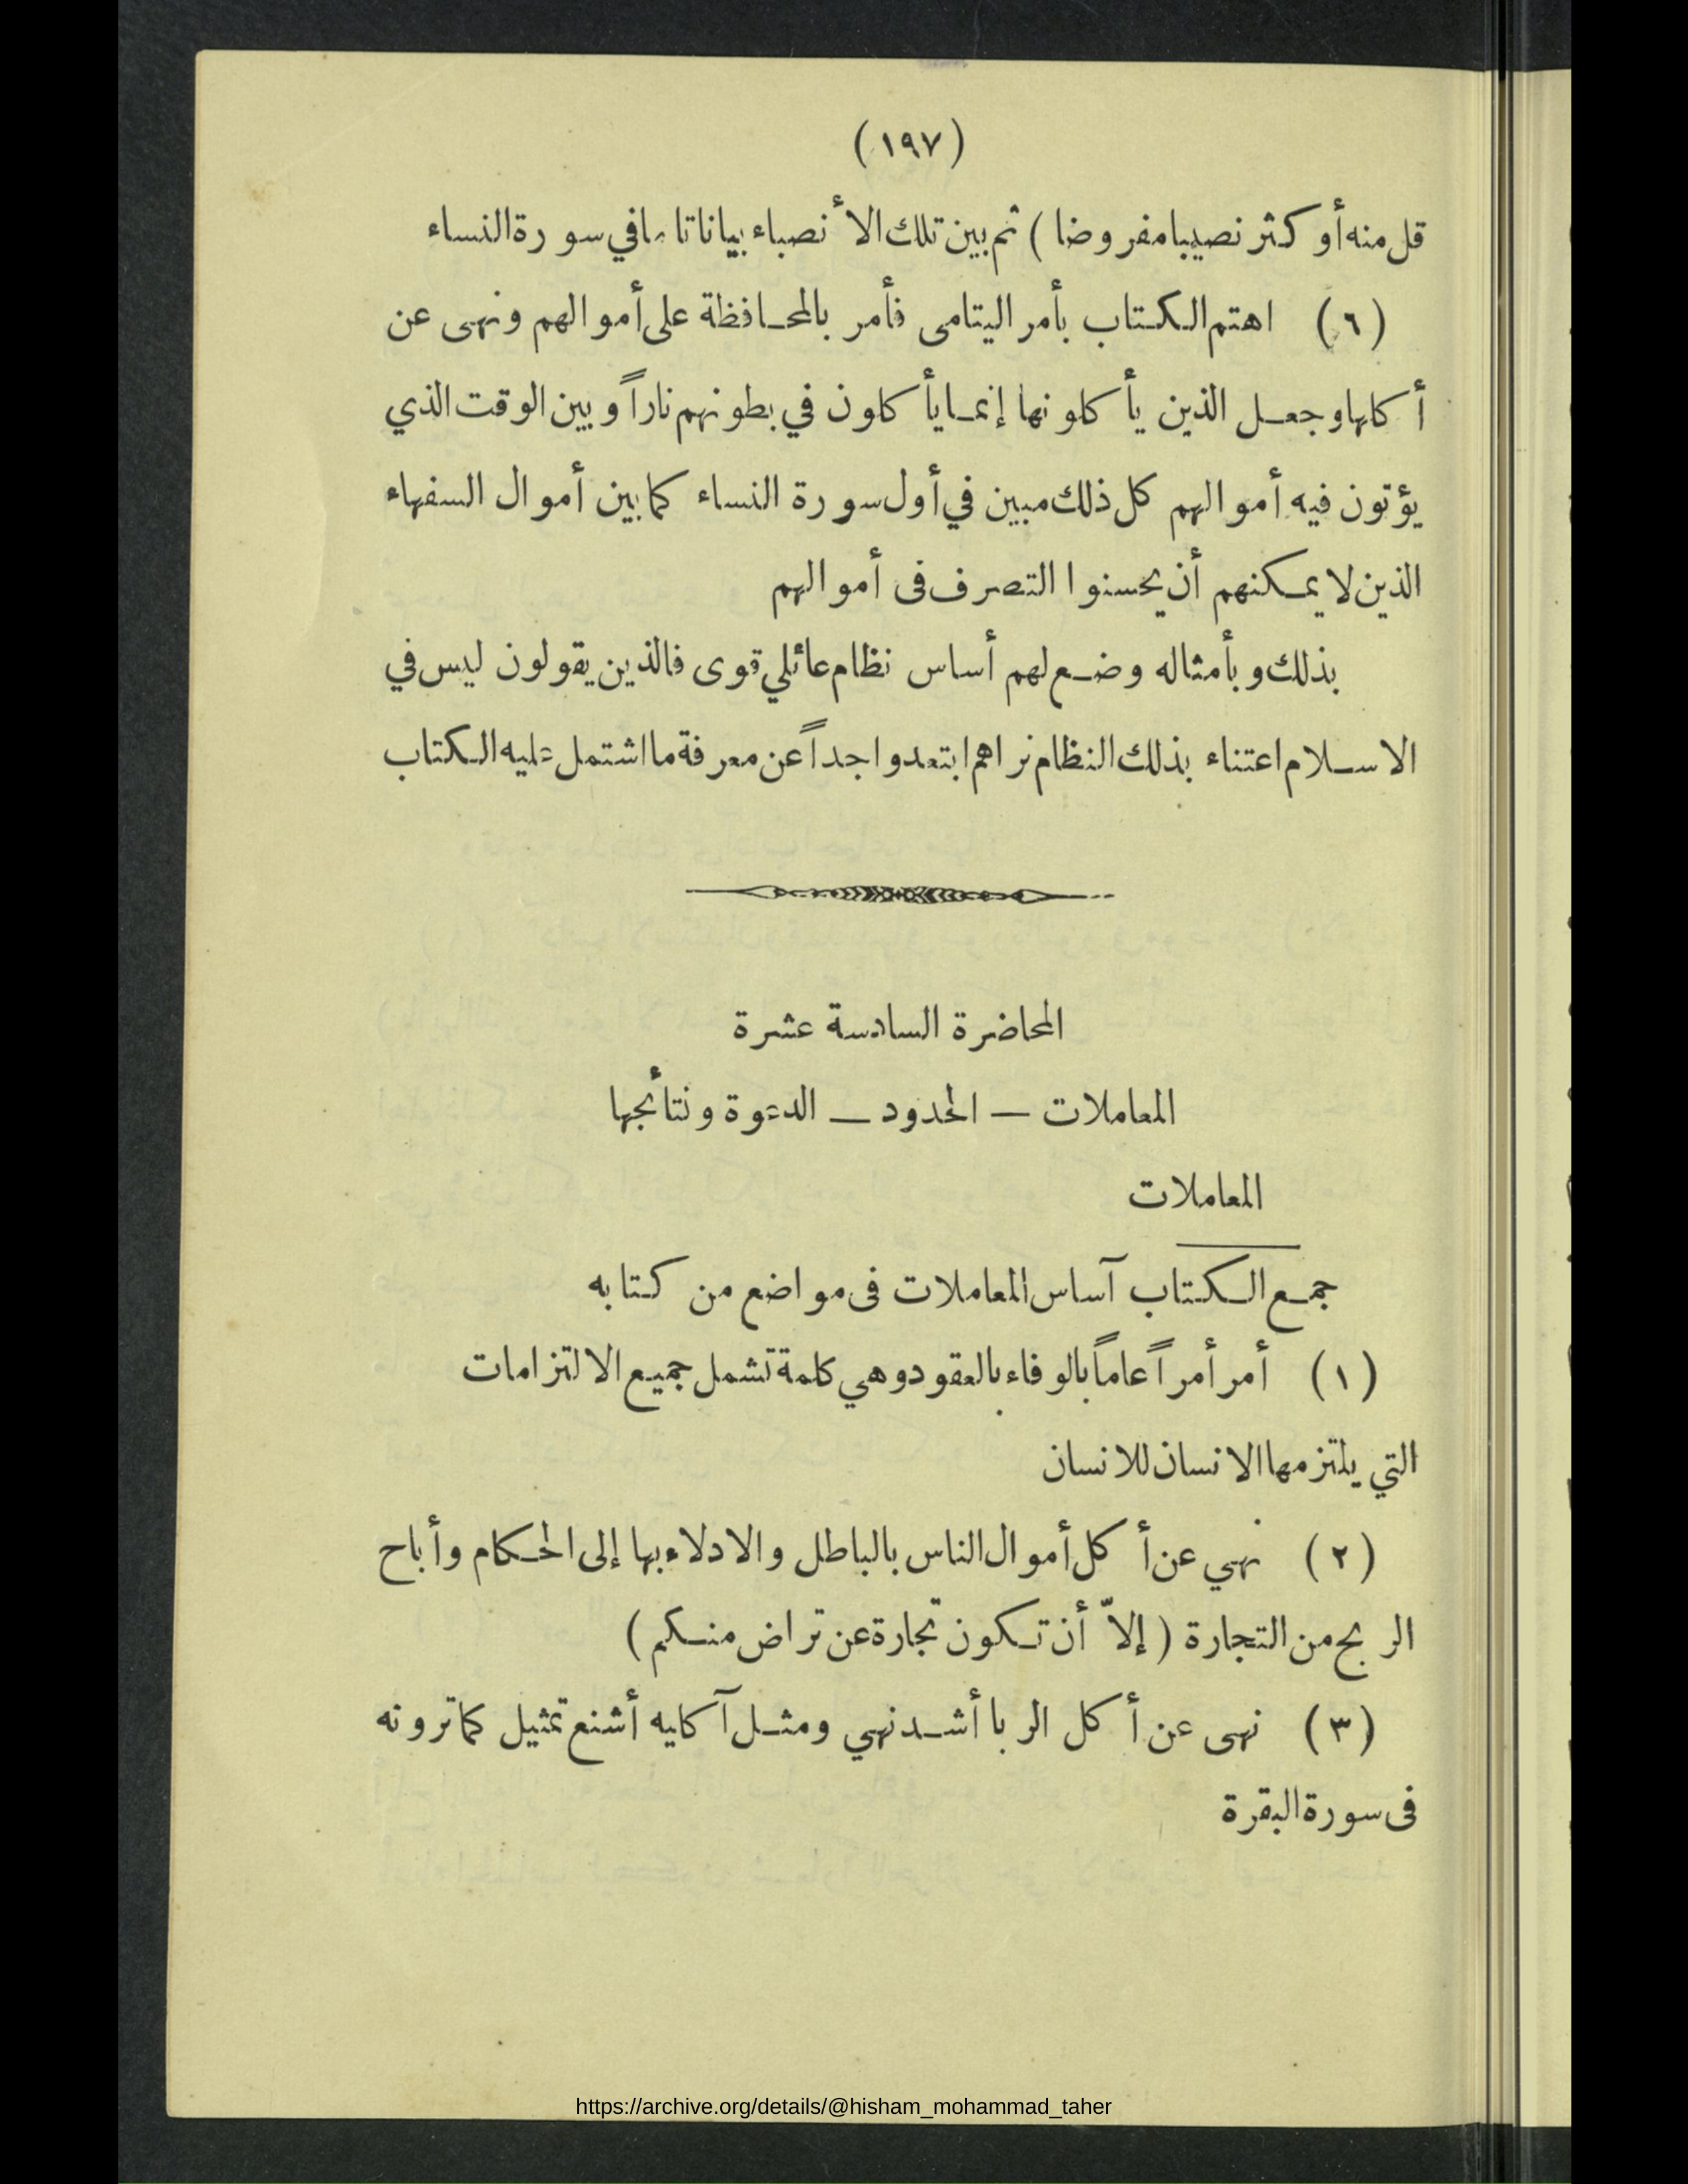 (١٩٧)
قل منه أو كثر نصيبا مفروضا ) ثم بين تلك الأنصباء بيانا تاما في سورة النساء
(٦) اهتم الكتاب بأمر اليتامى فأمر بالمحافظة على أموالهم ونهى عن
أكلها وجعل الذين يأكلونها إنما يأكلون في بطونهم ناراً وبين الوقت الذي
يؤتون فيه أموالهم كل ذلك مبين في أول سورة النساء كما بين أموال السفهاء
الذين لا يمكنهم أن يحسنوا التصرف فى أموالهم
بذلك وبأمثاله وضع لهم أساس نظام عائلي قوى فالذين يقولون ليس في
الاسلام اعتناء بذلك النظام نراهم ابتعدوا جداً عن معرفة ما اشتمل عليه الكتاب
المحاضرة السادسة عشرة
المعاملات — الحدود — الدعوة ونتائجها
المعاملات
جمع الكتاب آساس المعاملات فى مواضع من كتابه
(١) أمر أمراً عاماً بالوفاء بالعقود وهي كلمة تشمل جميع الالتزامات
التي يلتزمها الانسان للانسان
(٢) نهي عن أكل أموال الناس بالباطل والادلاء بها إلى الحكام وأباح
الربح من التجارة ( إلاّ أن تكون تجارة عن تراض منكم )
(٣) نهى عن أكل الربا أشد نهي ومثل آكليه أشنع تمثيل كما ترونه
فى سورة البقرة
https://archive.org/details/@hisham_mohammad_taher